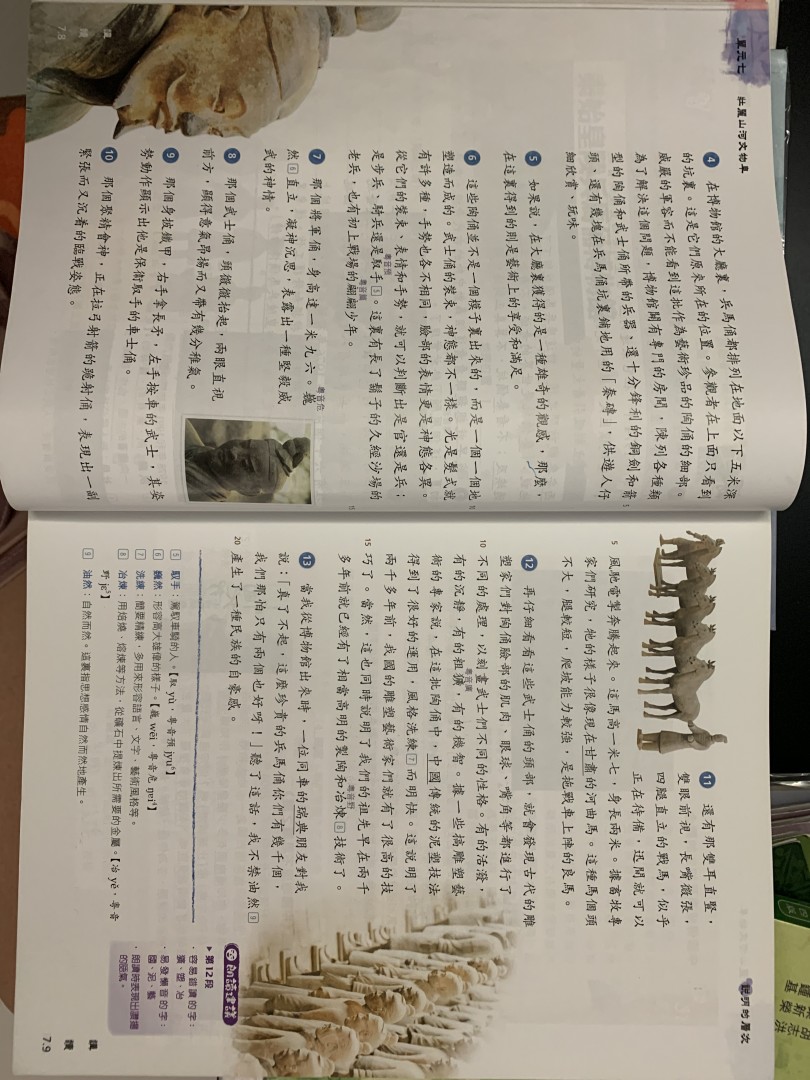 單元七 壯麗山河文物阜
4 在博物館的大廳裏，兵馬俑都排列在地面以下五米深
的坑裏。這是它們原來所在的位置。參觀者在上面只看到
威嚴的軍容而不能看到這批作為藝術珍品的陶俑的細部。
為了解決這個問題，博物館闢有專門的房間，陳列各種類
型的陶俑和武士俑所帶的兵器、還十分鋒利的銅劍和箭 5
頭、還有幾塊在兵馬俑坑裏鋪地用的「秦磚」，供遊人仔
細欣賞、玩味。
5 如果說，在大廳裏獲得的是一種雄奇的觀感，那麼，
在這裏得到的則是藝術上的享受和滿足。
6 這些陶俑並不是一個模子裏出來的，而是一個一個地 10
塑造而成的。武士俑的裝束，神態都不一樣。光是髮式就
有許多種，手勢也各不相同，臉部的表情更是神態各異。
從它們的裝束、表情和手勢，就可以判斷出是官還是兵；
是步兵、騎兵還是馭手5。這裏有長了鬍子的久經沙場的
老兵，也有初上戰場的翩翩少年。 15
7 那個將軍俑，身高達一米九六。巍
粵音危
然6直立，凝神沉思，表露出一種堅毅威
武的神情。
8 那個武士俑，頭微微抬起，兩眼直視
前方，顯得意氣昂揚而又帶有幾分稚氣。
9 那個身披鐵甲，右手拿長矛，左手按車的武士，其姿
勢動作顯示出他是保衛馭手的車士俑。
10 那個聚精會神，正在拉弓射箭的跪射俑，表現出一副
緊張而又沉着的臨戰姿態。
7.8
說明的層次
11 還有那雙耳直豎，
雙眼前視，長嘴微張，
四腿直立的戰馬，似乎
正在待備，迅間就可以
5 風馳電掣奔騰起來。這馬高一米七，身長兩米。據畜牧專
家們研究，牠的樣子很像現在甘肅的河曲馬。這種馬個頭
不大，腿較短，爬坡能力較強，是拖戰車上陣的良馬。
12 再仔細看看這些武士俑的頭部，就會發現古代的雕
塑家們對陶俑臉部的肌肉、眼球、嘴角等都進行了
10 不同的處理，以刻畫武士們不同的性格。有的活潑，
有的沉靜，有的粗獷，有的機智。據一些搞雕塑藝
術的專家說，在這批陶俑中，中國傳統的泥塑技法
得到了很好的運用，風格洗練7而明快。這說明了
兩千多年前，我國的雕塑藝術家們就有了很高的技
15 巧了。當然，這也同時說明了我們的祖先早在兩千
多年前就已經有了相當高明的製陶和冶煉8技術了。
粵音野
13 當我從博物館出來時，一位同車的瑞典朋友對我
說：「真了不起，這麼珍貴的兵馬俑你們有幾千個，
我們那怕只有兩個也好呀！」聽了這話，我不禁油然9
20 產生了一種民族的自豪感。
5 馭手：駕馭車騎的人。【馭 yù，粵音預 jyu⁶】
6 巍然：形容高大雄偉的樣子。【巍 wēi，粵音危 ŋɐi⁴】
7 洗練：簡要精練，多用來形容語言、文字、藝術風格等。
8 冶煉：用焙燒、熔煉等方法，從礦石中提煉出所需要的金屬。【冶 yě，粵音
野 jɛ⁵】
9 油然：自然而然。這裏指思想感情自然而然地產生。
朗讀建議
第12段
容易錯讀的字：
獷、塑、冶
易發懶音的字：
國、泥、藝
7.9